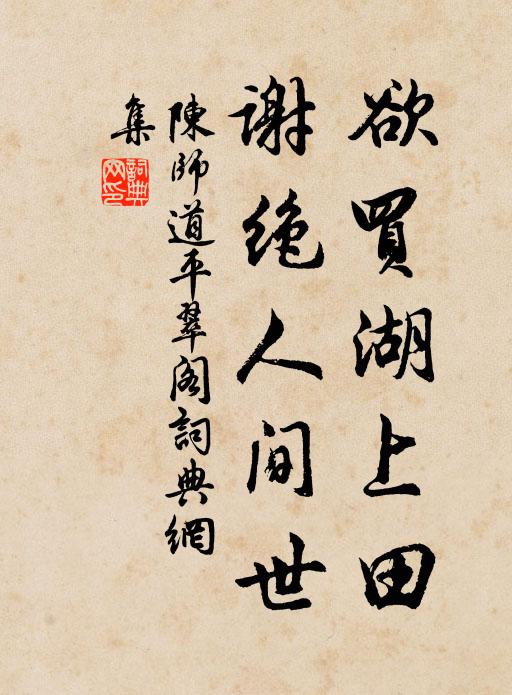 欲買湖上田
謝絶人間世
陳師道平翠阁詞典網
集
詞典
网印